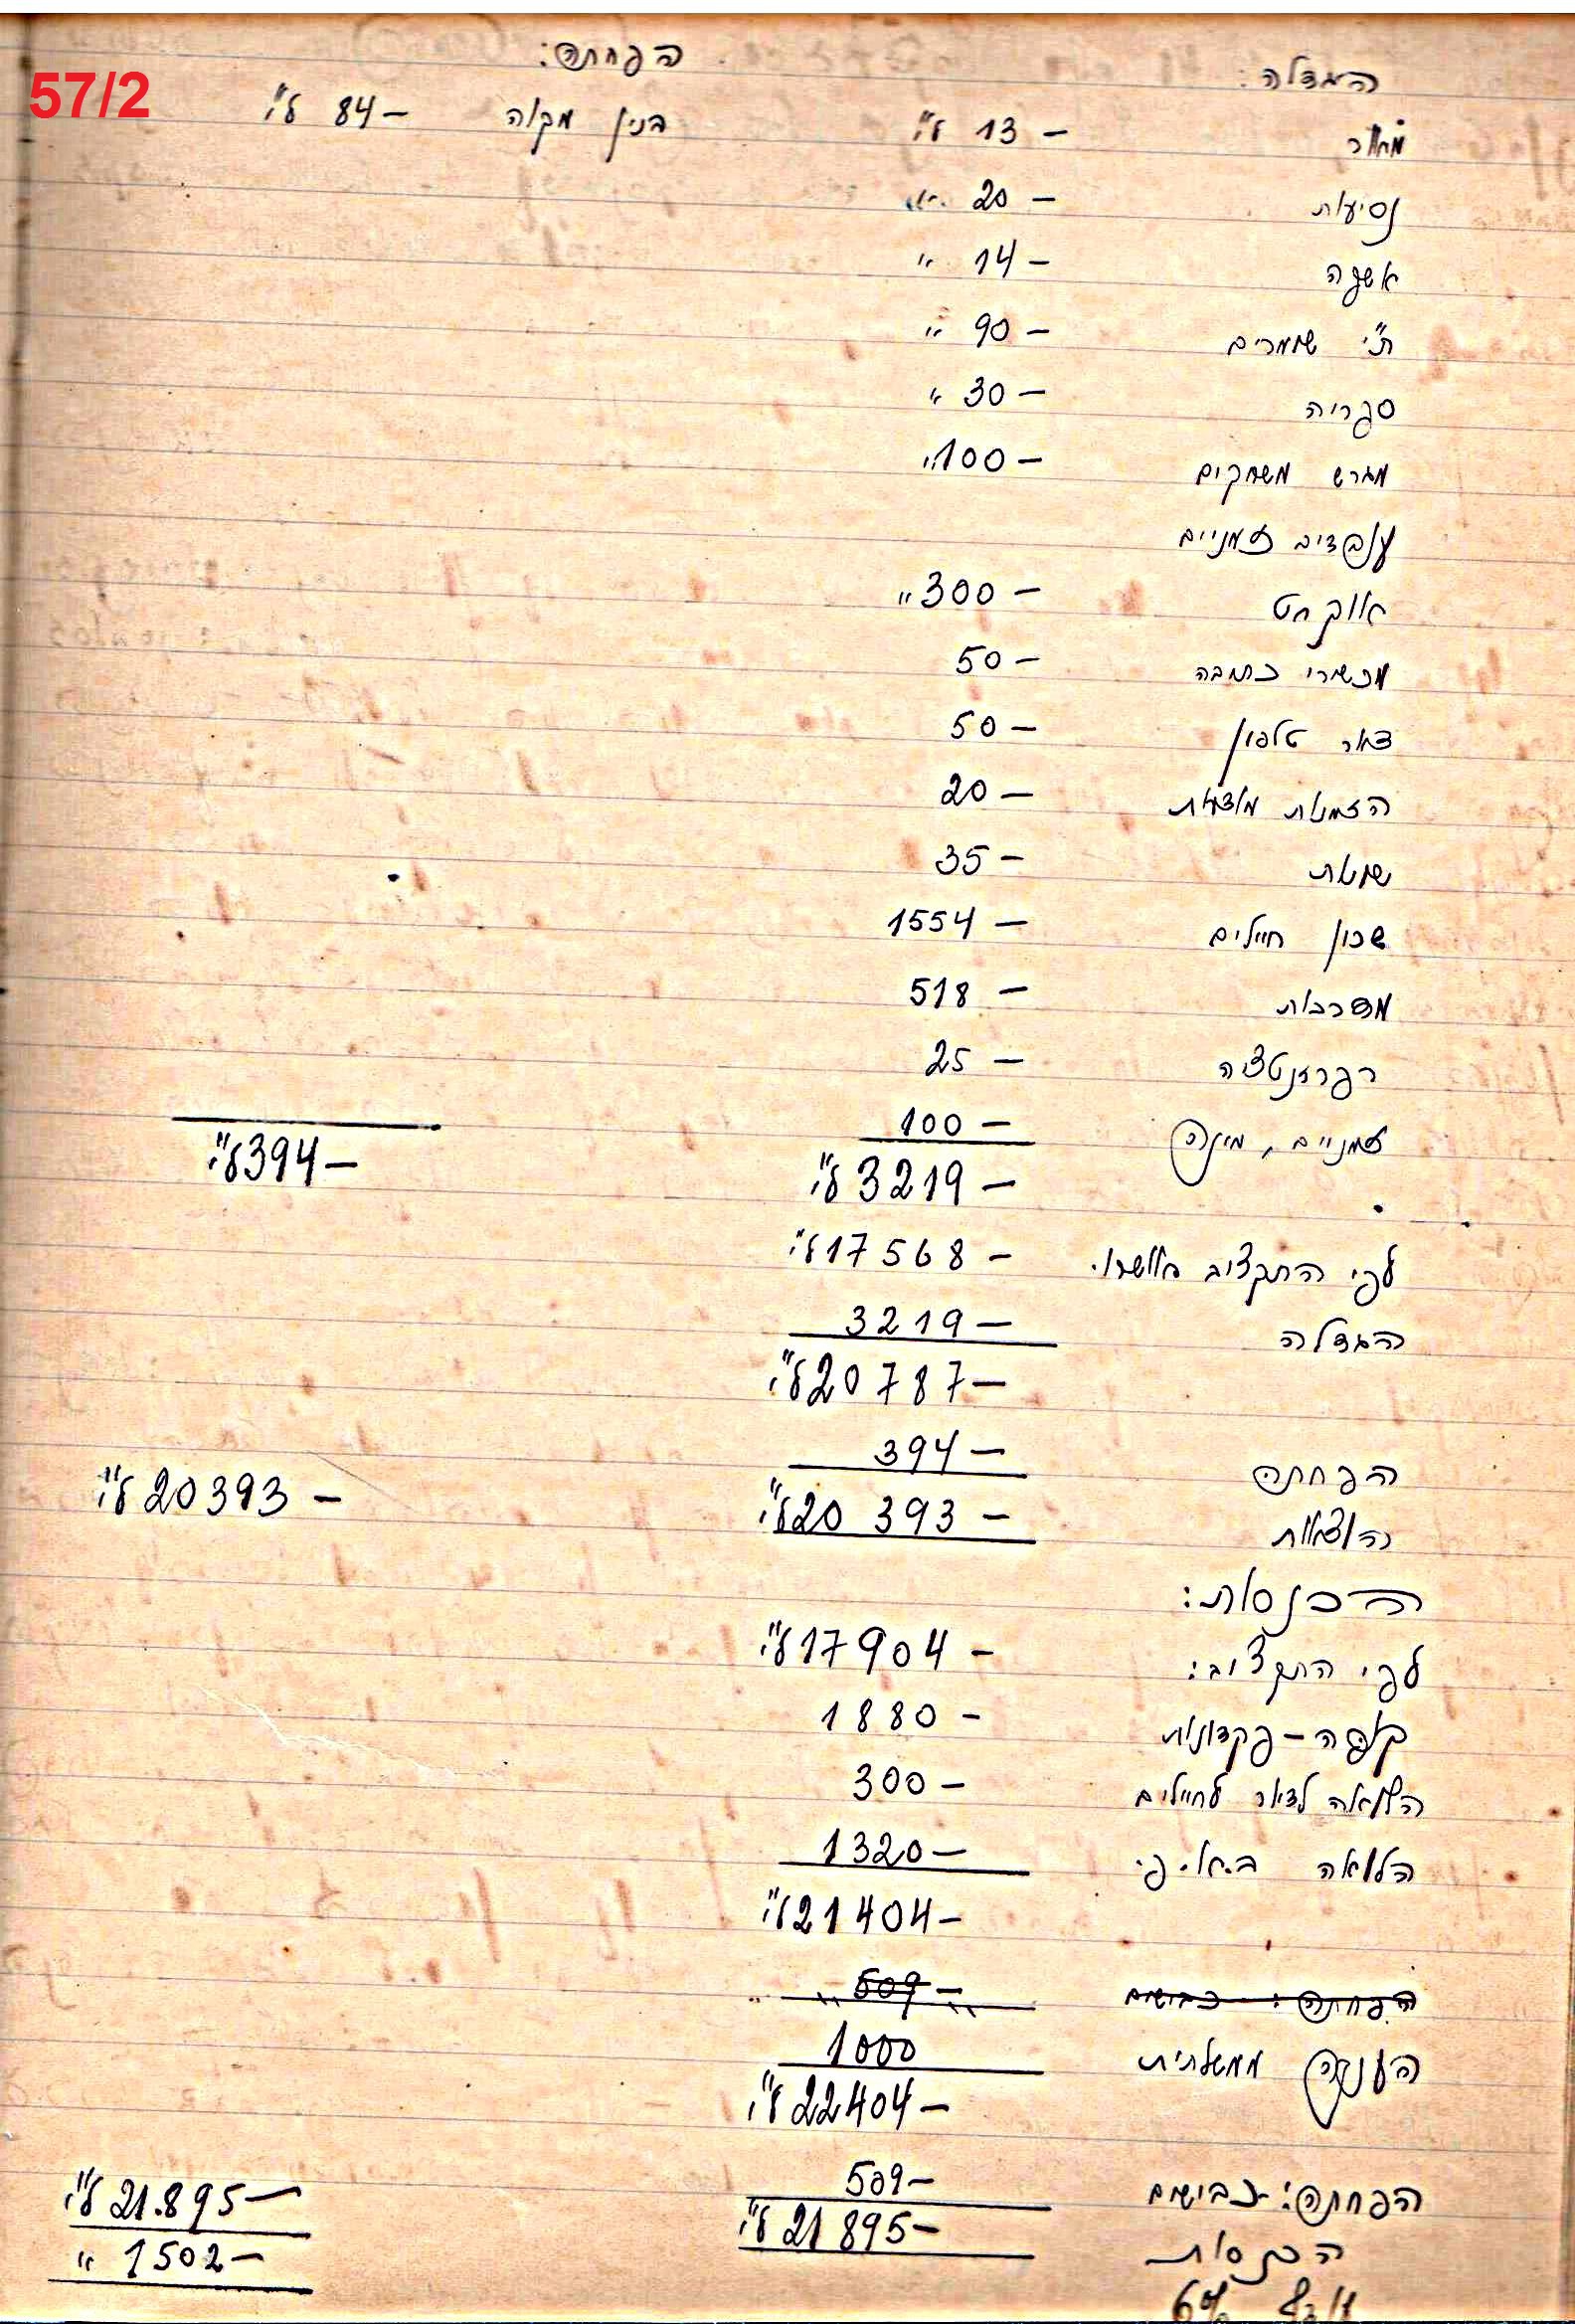 57/2
הגדלה: הפחתה:
מאור 13 – ל"י בנין מקוה 84 – ל"י
נסיעות 20 – "
אשפה 14 – "
ת"י שומרים 90 – "
ספריה 30 – "
מגרש משחקים 100 – "
עובדים זמניים
אווק חט 300 – "
מכשירי כתיבה 50 –
דאר טלפון 50 –
הזמנות מודעות 20 –
שונות 35 –
שכון חיילים 1554 –
מדרכות 518 –
רפרזנטציה 25 –
זמניים, מינהל 100 –
3219 – ל"י 394 – ל"י
לפי התקציב 17568 – ל"י
הגדלה 3219 –
20787 – ל"י
הפחתה 394 –
הוצאות 20393 – ל"י 20393 – ל"י
הכנסות:
לפי התקציב: 17904 – ל"י
קופה – פקדונות 1880 –
הלואה לדיור לחיילים 300 –
הלואה ב.א.פי 1320 –
21404 – ל"י
הפחתה: כבישים 509 –
הענקה ממשלתית 1000
22404 – ל"י
הפחתה: כבישים 509 –
21895 – ל"י 21.895 – ל"י
הכנסות 1502 – "
6%